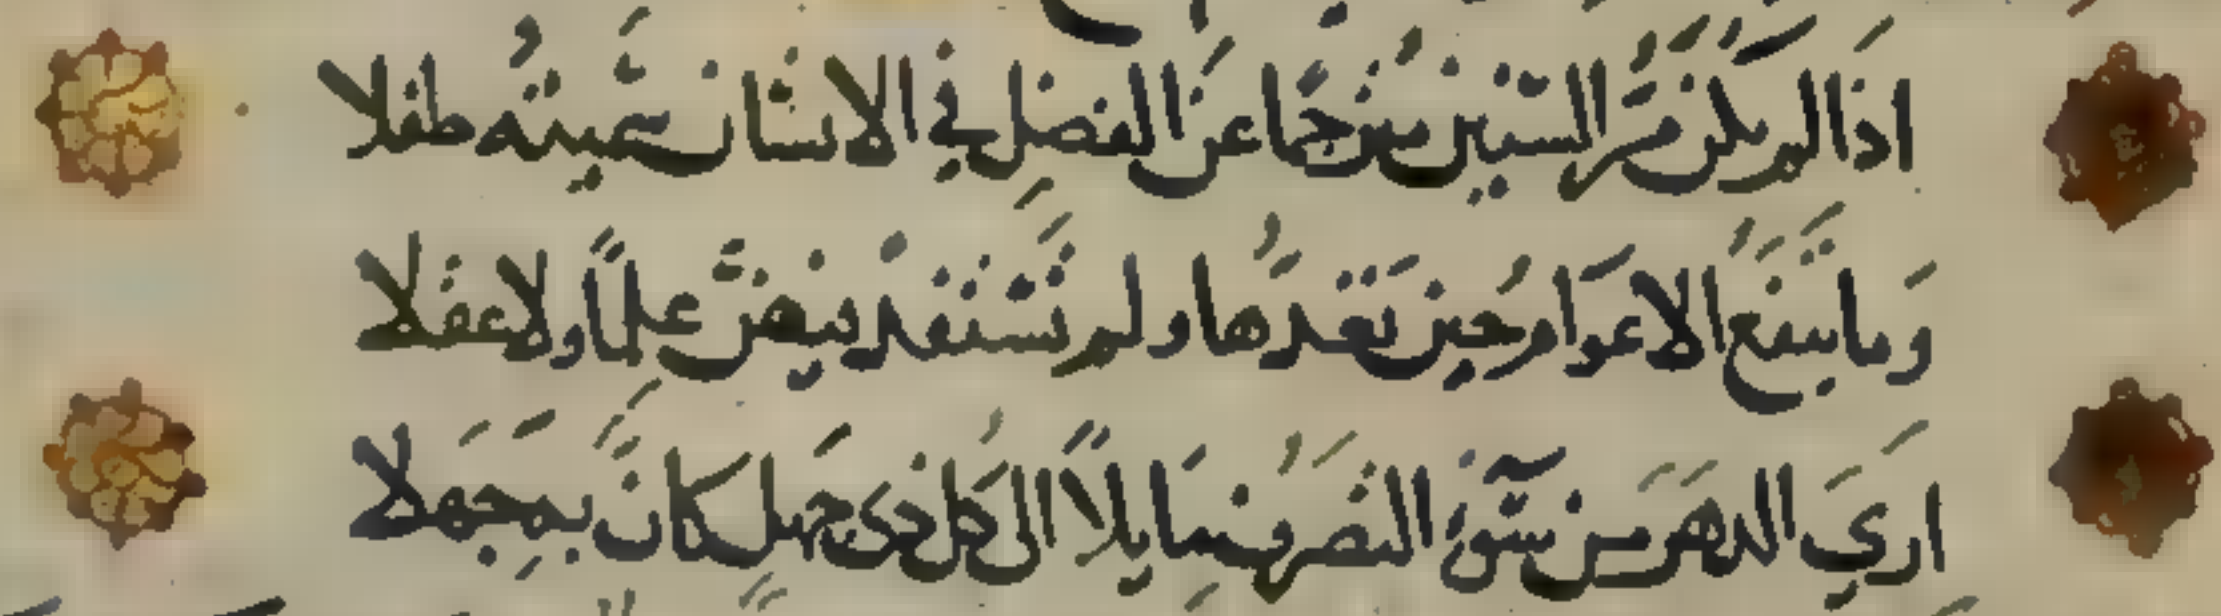 اذا لم يكن مَرُّ السنين مترجما عن الفضل في الانسان سَمَّيتُه طفلا
وَما يَنفَعُ الاعوامُ حين تَعُدُّها ولم تَسْتَفِدْ فيهنَّ علمًا ولا عقلا
ارَي الدهرَ من سُوءِ التصرُّفِ مَايلًا الى كُل ذي جَهلٍ كانَّ بهِ جَهلا